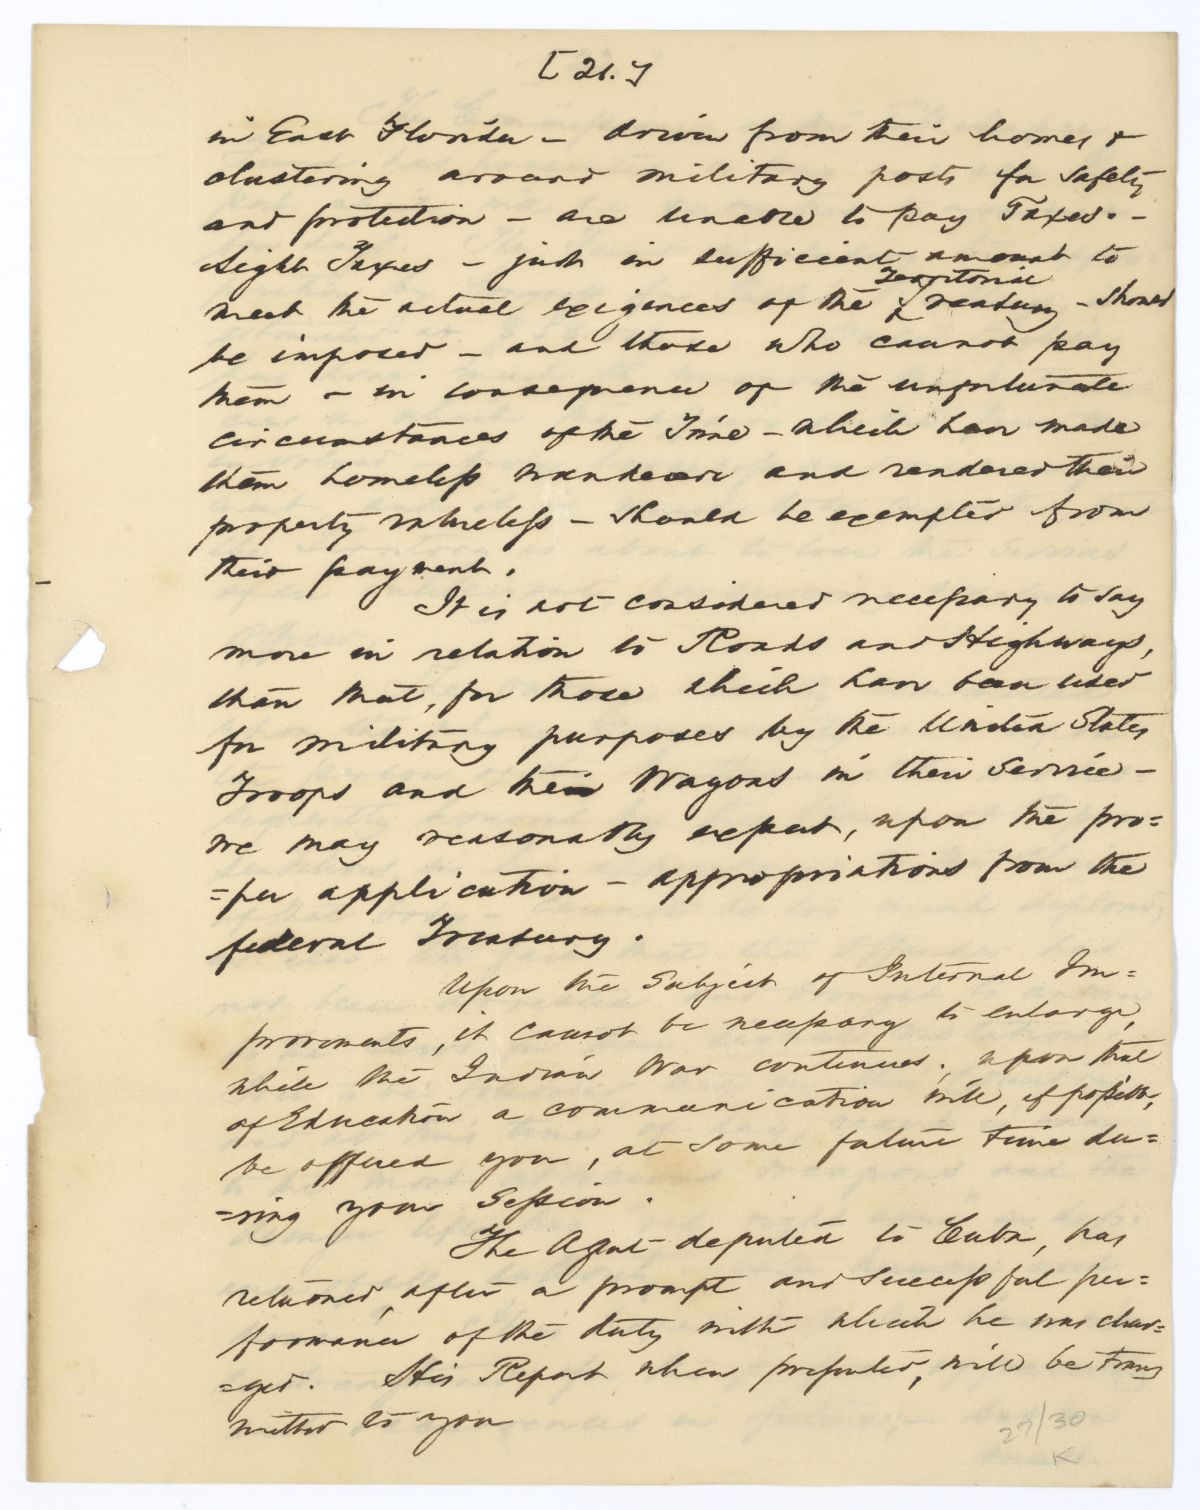 [21.]
in East Florida - driven from their homes &
clustering around military posts for Safety
and protection - are unable to pay Taxes. -
Light Taxes - just in sufficient amount to
meet the actual exigences of the Territorial Treasury - should
be imposed - and those who cannot pay
them - in consequence of the unfortunate
circumstances of the Time - which have made
them homeless wanderers and rendered their
property valueless - should be exempted from
their payment.
It is not considered necessary to say
more in relation to Roads and Highways,
than that, for those which have been used
for military purposes by the United States
Troops and their Wagons in their Service -
we may reasonably expect, upon the pro=
=per application - appropriations from the
federal Treasury.
Upon the Subject of Internal Im=
provements, it cannot be necessary to enlarge,
while the Indian War continues; upon that
of Education a communication will, if possible,
be offered you, at some future time du=
=ring your Session.
The Agent deputed to Cuba, has
returned, after a prompt and successful per=
formance of the duty with which he was char=
=ged. His Report when presented, will be trans
mitted to you
27/30
K